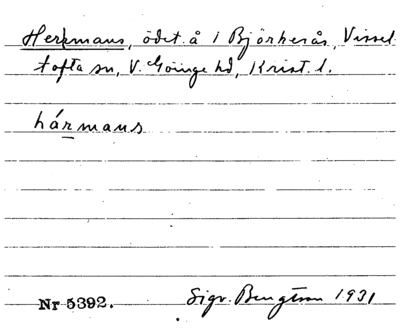 Herkmans, ödet. å i Björkerås, Vissel-
tofta sn, V. Göinge hd, Krist. l.
härmans
Nr 5392.
Sigv. Bengtson 1931